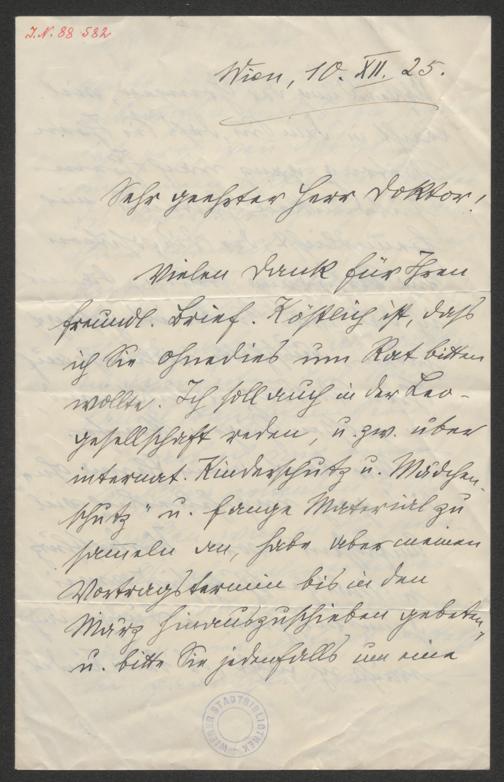 J.N. 88 582
Wien, 10. XII. 25.
Sehr geehrter Herr Doktor!
Vielen Dank für Ihren
freundl. Brief. Köstlich ist, daß
ich Sie ohnedies um Rat bitten
wollte. Ich soll auch in der Leo-
gesellschaft reden, u. zw. über
internat. Kinderschutz u. Mädchen-
schutz" u. fange Material zu
sammeln an, habe aber meinen
Vortragstermin bis in den
März hinauszuschieben gebeten,
u. bitte Sie jedenfalls um eine
WIENER STADTBIBLIOTHEK